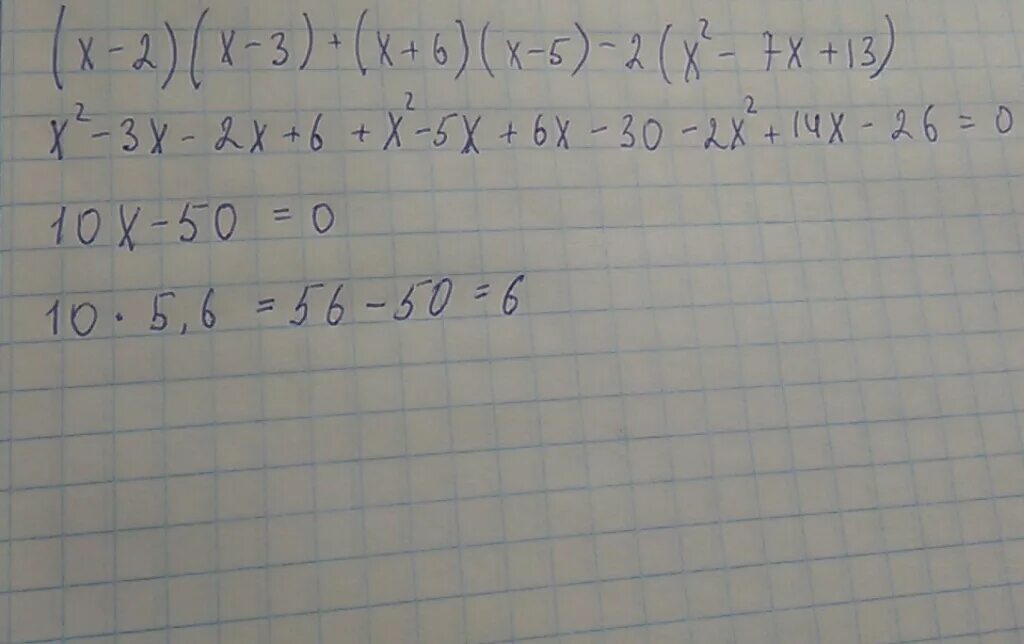 (x-2)(x-3)+(x+6)(x-5)-2(x²-7x+13)
x²-3x-2x+6+x²-5x+6x-30-2x²+14x-26=0
10x-50=0
10·5,6=56-50=6